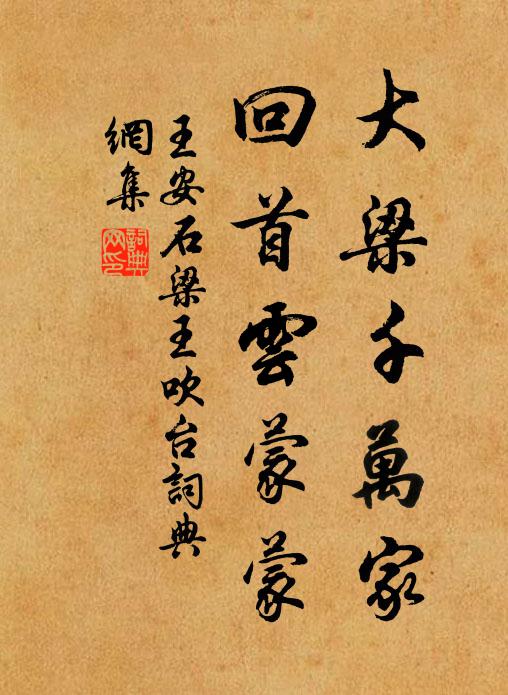 大梁千萬家
回首雲蒙蒙
王安石梁王吹台詞典
網集
詞典網印